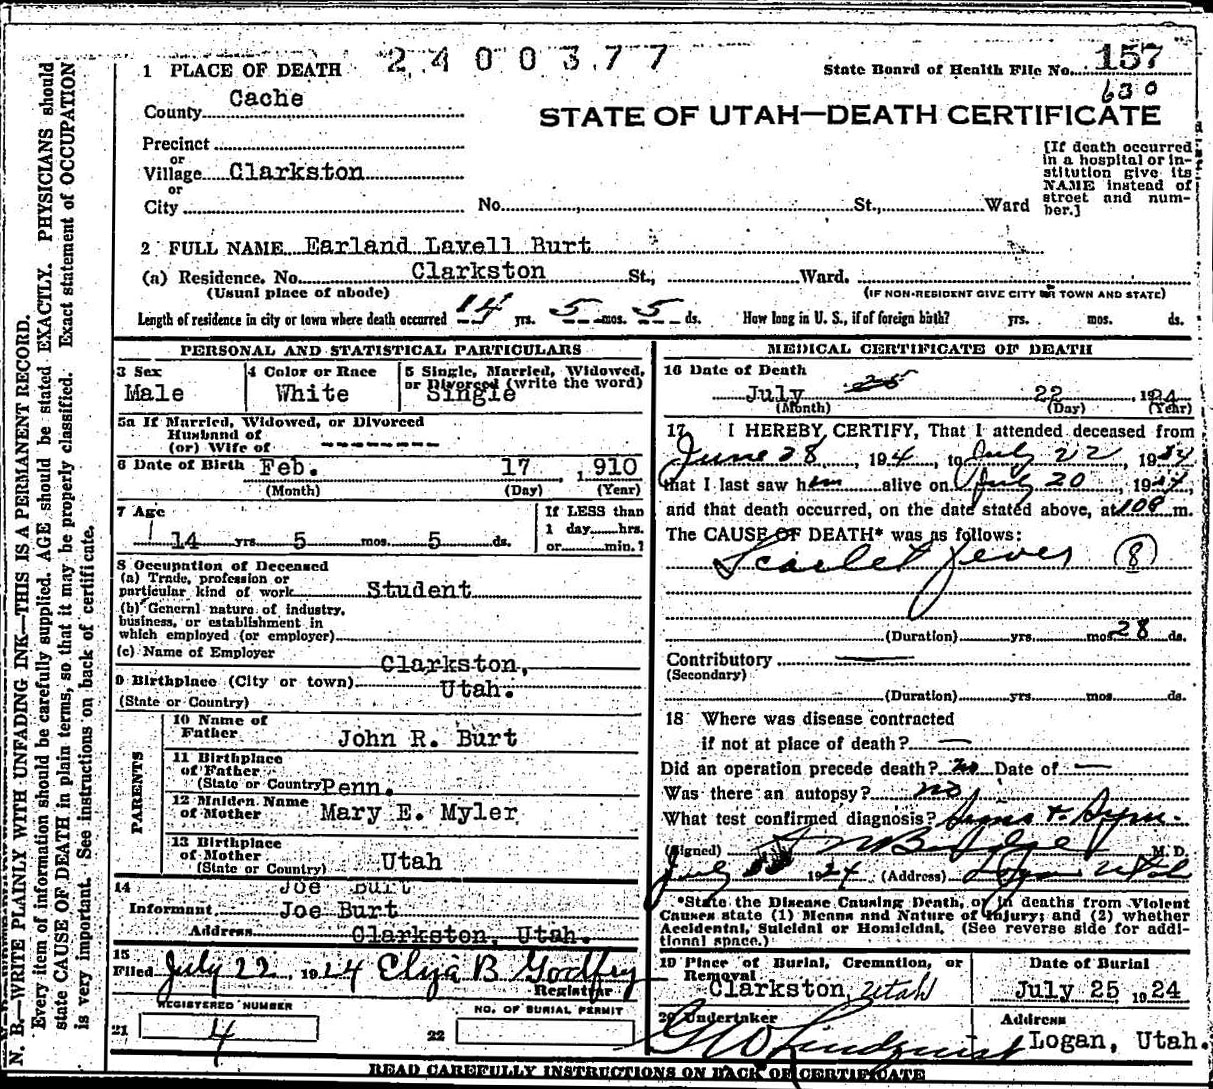 2400377
1 PLACE OF DEATH
State Board of Health File No. 157
630
County Cache
STATE OF UTAH—DEATH CERTIFICATE
Precinct
or
Village Clarkston
or
City No. St., Ward
[If death occurred
in a hospital or in-
stitution give its
NAME instead of
street and num-
ber.]
2 FULL NAME Earland Lavell Burt
(a) Residence. No. Clarkston St., Ward.
(Usual place of abode) (IF NON-RESIDENT GIVE CITY OR TOWN AND STATE)
Length of residence in city or town where death occurred 14 yrs. 5 mos. 5 ds. How long in U. S., if of foreign birth? yrs. mos. ds.
PERSONAL AND STATISTICAL PARTICULARS
3 Sex
Male
4 Color or Race
White
5 Single, Married, Widowed,
or Divorced (write the word)
Single
5a If Married, Widowed, or Divorced
Husband of
(or) Wife of
6 Date of Birth Feb. 17, 1910
(Month) (Day) (Year)
7 Age
14 yrs 5 mos. 5 ds.
If LESS than
1 day hrs.
or min.?
8 Occupation of Deceased
(a) Trade, profession or
particular kind of work Student
(b) General nature of industry,
business, or establishment in
which employed (or employer)
(c) Name of Employer
Clarkston,
9 Birthplace (City or town)
Utah.
(State or Country)
PARENTS
10 Name of
Father John R. Burt
11 Birthplace
of Father
(State or Country) Penn.
12 Maiden Name
of Mother Mary E. Myler
13 Birthplace
of Mother
(State or Country) Utah
14
Joe Burt
Informant Joe Burt
Address Clarkston, Utah.
15
Filed July 22, 1924 Eliza B. Godfrey
Registrar
REGISTERED NUMBER
21 4
NO. OF BURIAL PERMIT
22
MEDICAL CERTIFICATE OF DEATH
16 Date of Death
July 25 22, 1924
(Month) (Day) (Year)
17 I HEREBY CERTIFY, That I attended deceased from
June 28, 1924, to July 22 1924
that I last saw him alive on July 20, 1924,
and that death occurred, on the date stated above, at m.
The CAUSE OF DEATH* was as follows:
Scarlet fever (8)
(Duration) yrs. mos 28 ds.
Contributory
(Secondary)
(Duration) yrs. mos. ds.
18 Where was disease contracted
if not at place of death? —
Did an operation precede death? no Date of —
Was there an autopsy? no
What test confirmed diagnosis? Signs & Sym.
(Signed) M.D.
July 1924 (Address) Logan Utah
*State the Disease Causing Death, or in deaths from Violent
Causes state (1) Means and Nature of Injury; and (2) whether
Accidental, Suicidal or Homicidal. (See reverse side for addi-
tional space.)
19 Place of Burial, Cremation, or
Removal
Clarkston Utah
Date of Burial
July 25 1924
20 Undertaker
Lindquist
Address
Logan, Utah.
READ CAREFULLY INSTRUCTIONS ON BACK OF CERTIFICATE
N. B.—WRITE PLAINLY WITH UNFADING INK—THIS IS A PERMANENT RECORD.
Every item of information should be carefully supplied. AGE should be stated EXACTLY. PHYSICIANS should
state CAUSE OF DEATH in plain terms, so that it may be properly classified. Exact statement of OCCUPATION
is very important. See instructions on back of certificate.